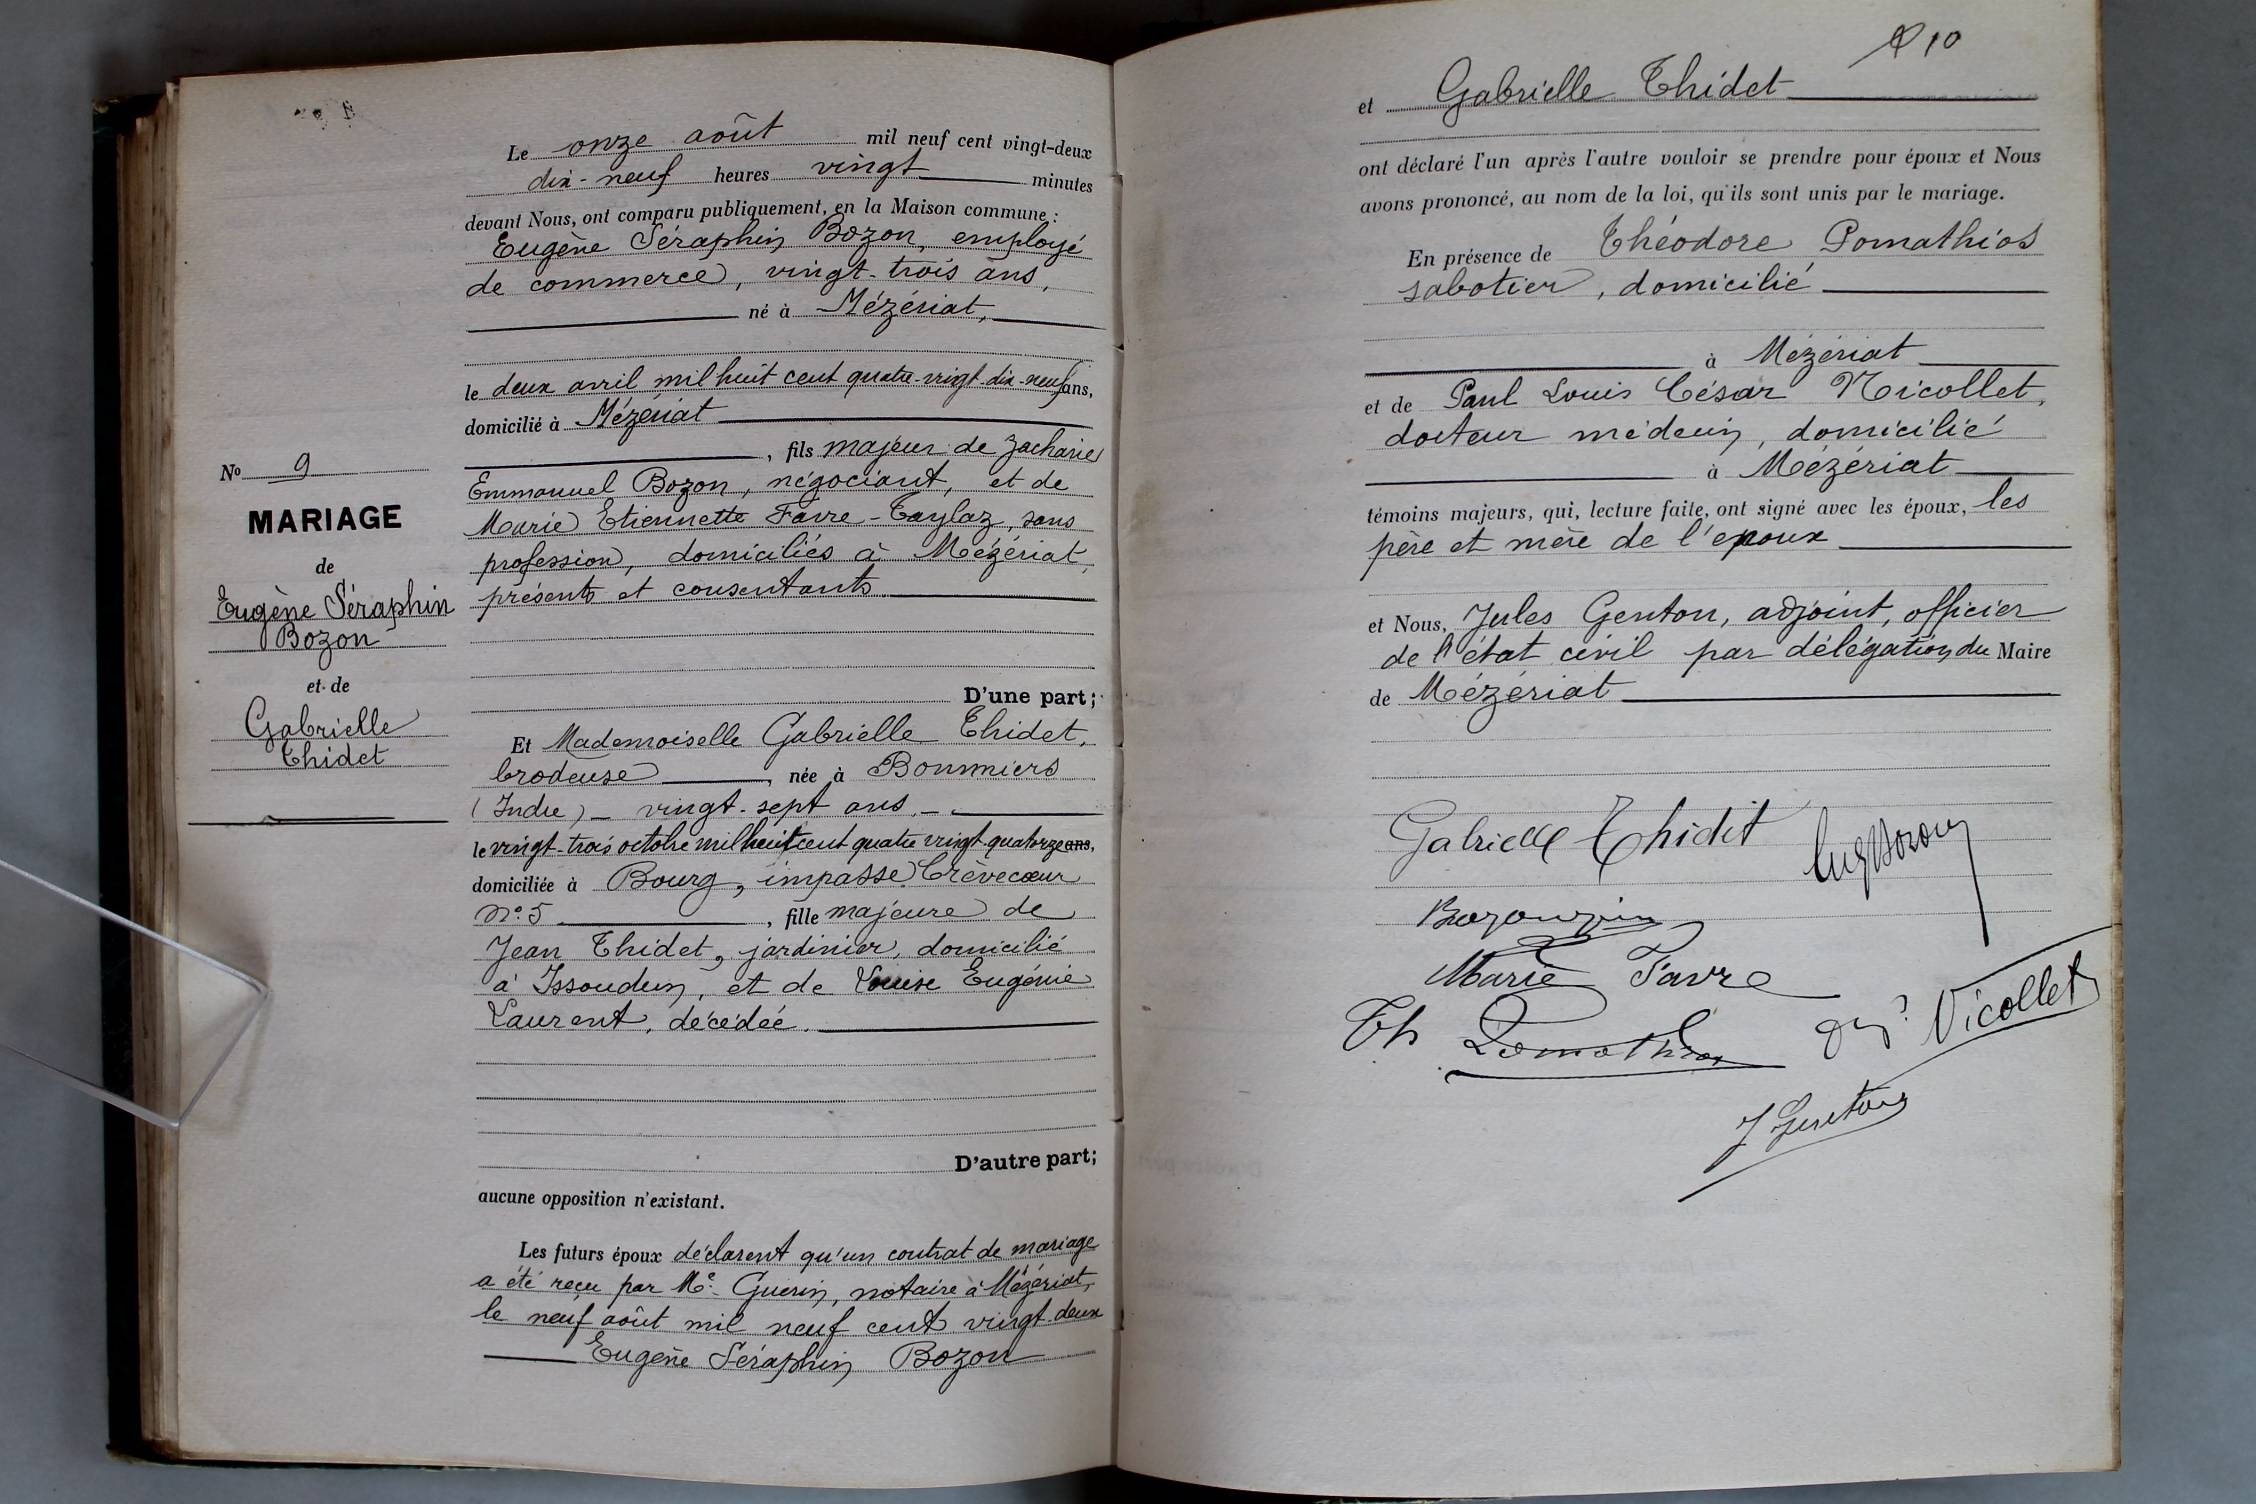 Le onze août mil neuf cent vingt-deux
dix-neuf heures vingt minutes
devant Nous, ont comparu publiquement, en la Maison commune :
Eugène Séraphin Bozon, employé
de commerce, vingt-trois ans,
né à Mézériat,
le deux avril mil huit cent quatre-vingt-dix-neuf ans,
domicilié à Mézériat
, fils majeur de Zacharie
Emmanuel Bozon, négociant, et de
Marie Etiennette Favre-Taylaz, sans
profession, domiciliés à Mézériat,
présents et consentants
D'une part;
No 9
MARIAGE
de
Eugène Séraphin
Bozon
et de
Gabrielle
Thidet
Et Mademoiselle Gabrielle Thidet,
brodeuse, née à Bommiers
(Indre) - vingt-sept ans. -
le vingt-trois octobre mil huit cent quatre vingt quatorze ans,
domiciliée à Bourg, impasse Crèvecœur
n° 5, fille majeure de
Jean Thidet, jardinier, domicilié
à Issoudun, et de Louise Eugénie
Laurent, décédée.
D'autre part;
aucune opposition n'existant.
Les futurs époux déclarent qu'un contrat de mariage
a été reçu par Me Guerin, notaire à Mézériat,
le neuf août mil neuf cent vingt-deux
Eugène Séraphin Bozon
10
et Gabrielle Thidet
ont déclaré l'un après l'autre vouloir se prendre pour époux et Nous
avons prononcé, au nom de la loi, qu'ils sont unis par le mariage.
En présence de Théodore Pomathios
sabotier, domicilié
à Mézériat
et de Paul Louis César Nicollet,
docteur médecin, domicilié
à Mézériat
témoins majeurs, qui, lecture faite, ont signé avec les époux, les
père et mère de l'époux
et Nous, Jules Genton, adjoint, officier
de l'état civil par délégation du Maire
de Mézériat
Gabrielle Thidet
Eug Bozon
Marie Favre
Th Pomathios
Nicollet
J Genton